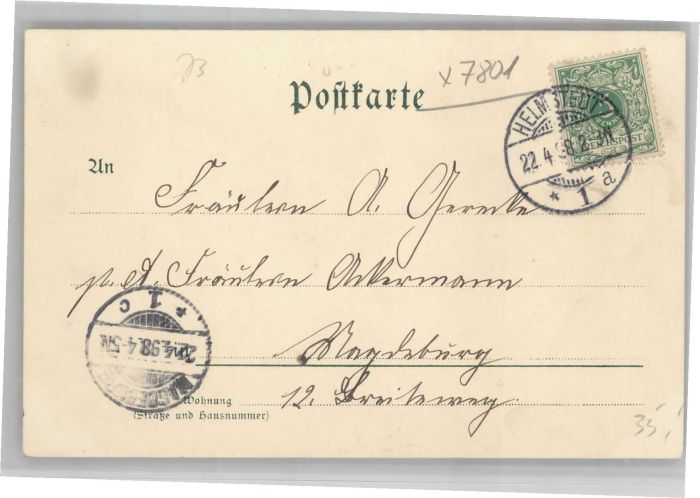 x 7801
Postkarte
HELMSTEDT
22.4.98.2-3N
* 1 a
REICHSPOST
An
Fräulein A. Gericke
p. Ad. Fräulein Ackermann
Magdeburg
12. Breiteweg.
Wohnung
(Straße und Hausnummer)
* 1 c
22.4.98.4-5N
MAGDEBURG
35,-